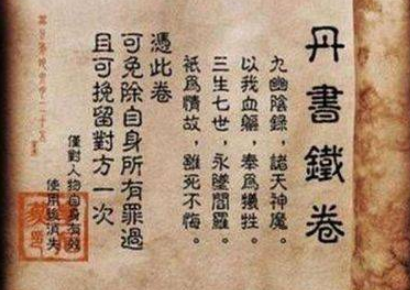 丹書鐵卷
九幽陰錄，諸天神魔。
以我血軀，奉為犧牲。
三生七世，永墜閻羅。
祇為情故，雖死不悔。
憑此卷
可免除自身所有罪過
且可挽留對方一次
僅對人物自身有效
使用後消失